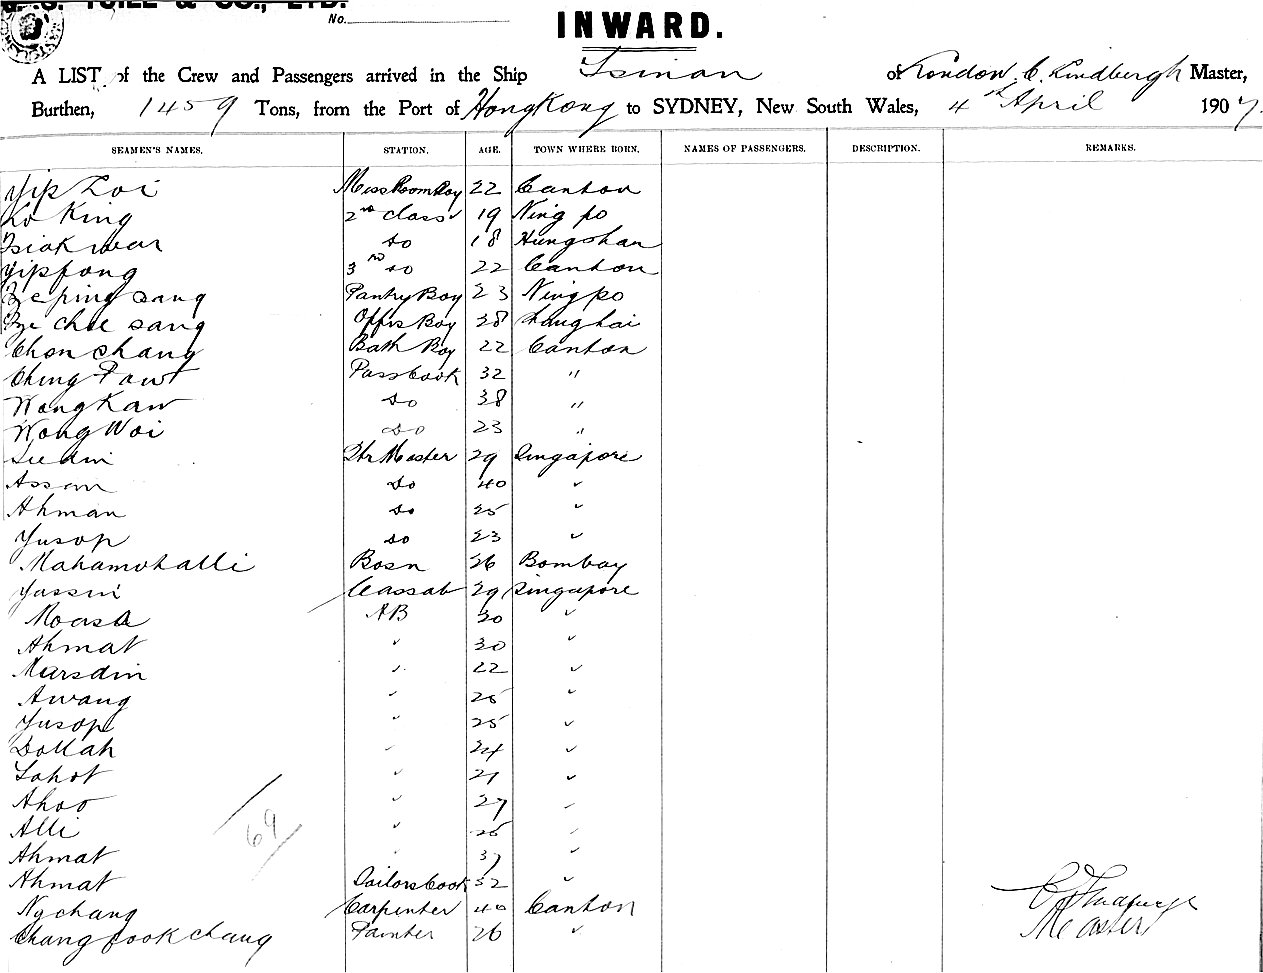 G. S. YUILL & CO., LTD.
No.
INWARD.
A LIST of the Crew and Passengers arrived in the Ship Tsinan of London. C. Lindbergh Master,
Burthen, 1459 Tons, from the Port of HongKong to SYDNEY, New South Wales, 4th April 1907.
SEAMEN'S NAMES. STATION. AGE. TOWN WHERE BORN. NAMES OF PASSENGERS. DESCRIPTION. REMARKS.
Yip Loi MessRoomBoy 22 Canton
Lo King 2nd Class 19 Ning po
Tsiok war do 18 Hungshan
Yipfong 3rd do 22 Canton
Ze ping sang Pantry Boy 23 Ningpo
Zee chee sang Offrs Boy 38 Shanghai
Chon Chang Bath Boy 22 Canton
Ching Fawt Pass Cook 32 "
Wong Kaw do 38 "
Wong Woi do 23 "
Suedin Qtr Master 29 Singapore
Assam do 40 "
Ahman do 25 "
Yusop do 23 "
Mahamohalli Bosn 26 Bombay
Yassin Cassab 29 Singapore
Moasa AB 30 "
Ahmat " 30 "
Marsdin " 22 "
Awang " 25 "
Yusop " 25 "
Dollah " 24 "
Lahot " 21 "
Ahoo " 27 "
Alli " 25 "
69
Ahmat " 37 "
Ahmat Sailors Cook 32 "
Ng chang Carpenter 40 Canton
Chang fook chang Painter 26 "
C Lindbergh
Master